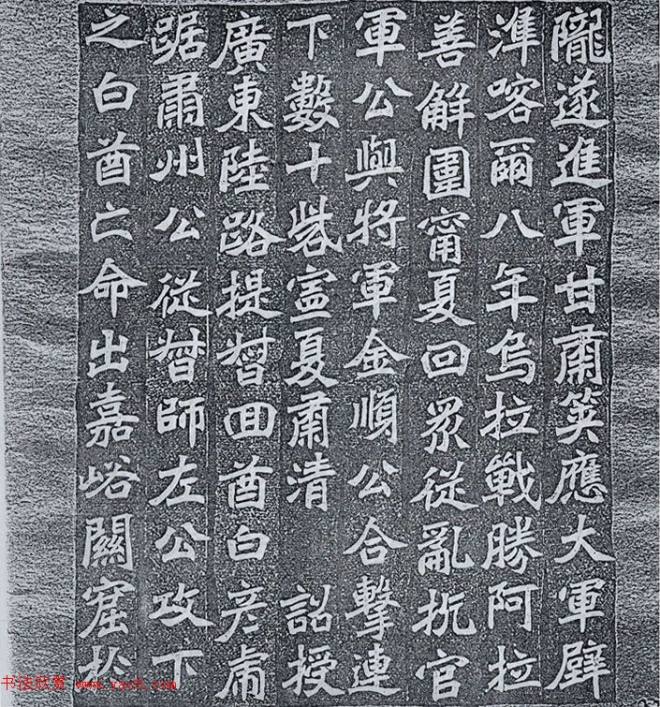 隴遂進軍甘肅筴應大軍壁
準喀爾八年烏拉戰勝阿拉
善解圍甯夏回眾從亂抗官
軍公與將軍金順公合擊連
下數十砦寍夏肅清 詔授
廣東陸路提督回酋白彥虎
踞肅州公從督師左公攻下
之白酋亡命出嘉峪關窟於
书法欣赏 www.yac8.com